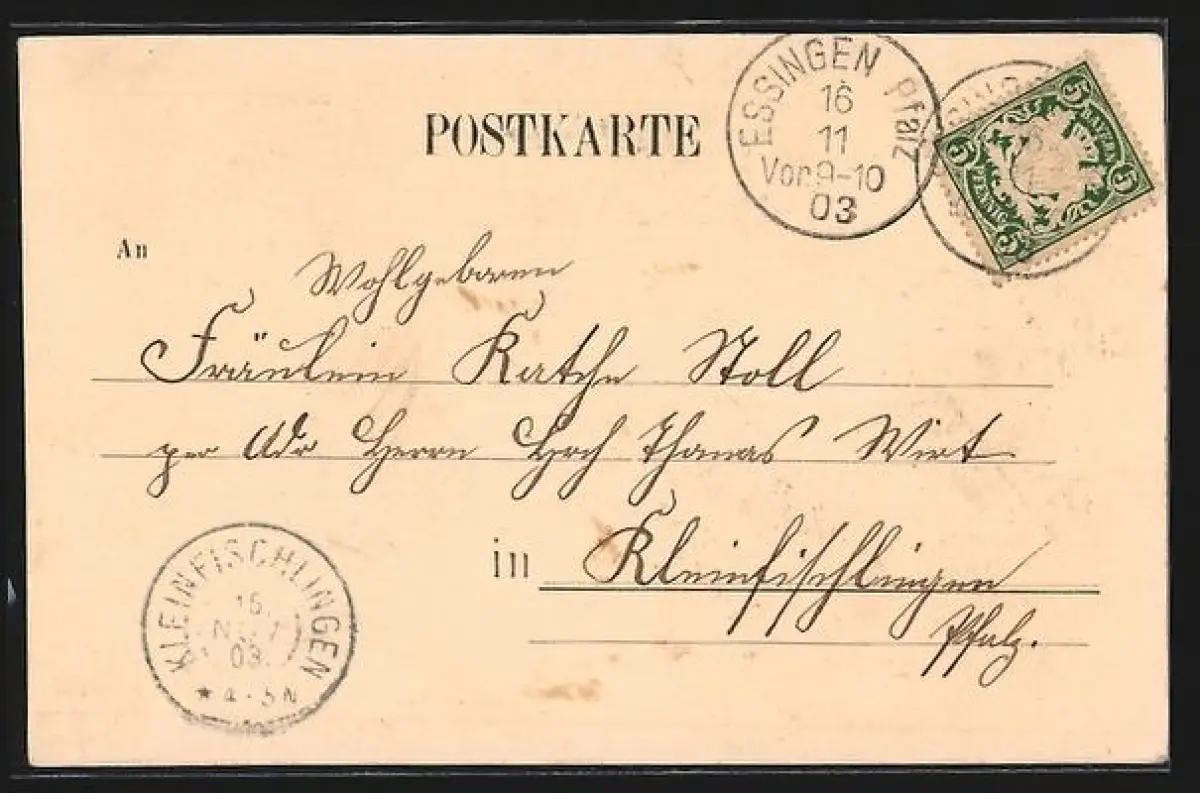 POSTKARTE
ESSINGEN Pfalz
16
11
Vor. 9-10
03
5 5 5
BAYERN
PFENNIG
An
Wohlgeboren
Fräulein Kathe Stoll
per Adr Herrn Hch Thomas Wirt
in Kleinfischlingen
Pfalz.
KLEINFISCHLINGEN
16.
NOV
03.
4-5N